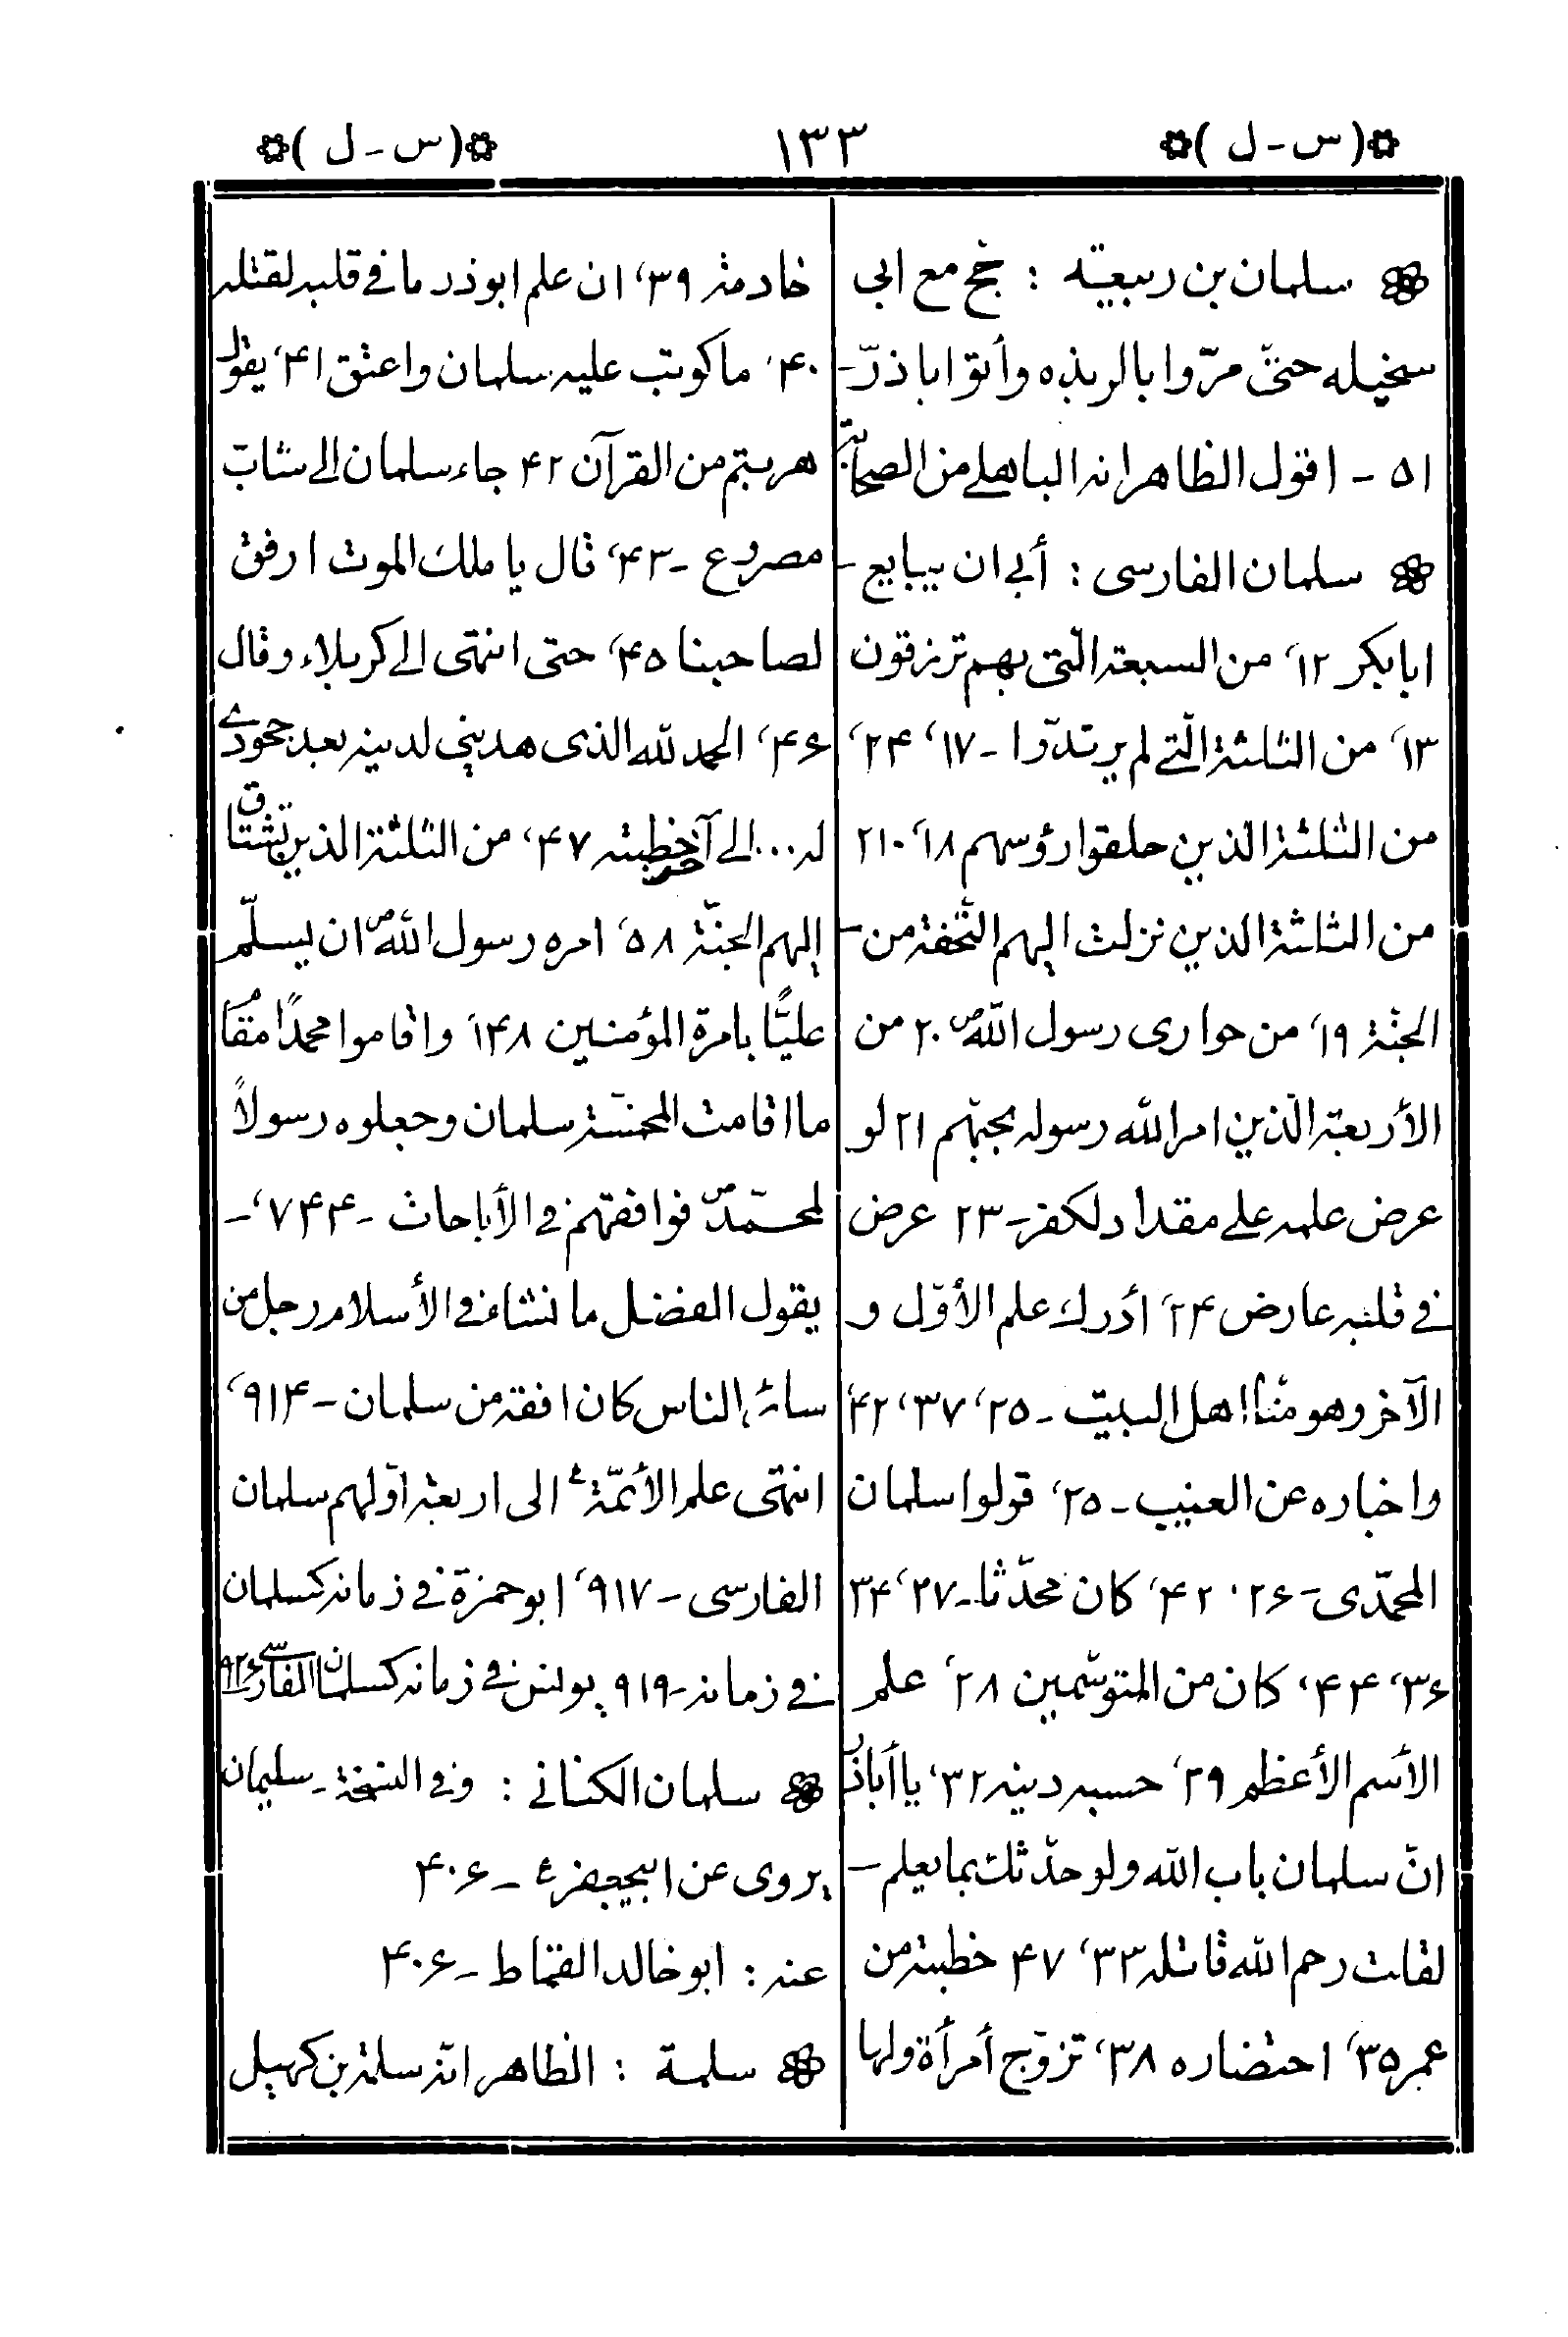 (س-ل) ١٣٣ (س-ل)
سلمان بن ربيعة : حج مع ابى
سخيله حتّى مرّوا بالربذه وأتوا اباذرّ-
٥١ - اقول الظاهر انه الباهلي من الصحابة
سلمان الفارسى : أبى ان يبايع -
ابابكر ١٢، من السبعة الّتى بهم ترزقون
١٣، من الثلاثة الّتي لم يرتدّوا - ١٧، ٢۴،
من الثلثة الذين حلقوا رؤسهم ١٨، ٢١٠
من الثلثة الذين نزلت اليهم التّحفة من -
الجنّة ١٩، من حوارى رسول اللّه ص ٢٠ من
الأربعة الّذين امر اللّه رسوله بحبّهم ٢١ لو
عرض علمه على مقداد لكفر- ٢٣ عرض
في قلبه عارض ٢۴، أدرك علم الأوّل و
الآخر وهو منّا اهل البيت - ٢٥، ٣٧، ۴٢،
واخباره عن الغيب - ٢٥، قولوا سلمان
المحمّدى - ٢۶، ۴٢، كان محدّثا - ٢٧، ٣۴
٣۶، ۴۴، كان من المتوسّمين ٢٨، علم
الأسم الأعظم ٢٩، حسبه دينه ٣٢، يا أباذر
انّ سلمان باب اللّه ولو حدّثك بما يعلم -
لقلت رحم اللّه قاتله ٣٣، ۴٧ خطبته من
عمر ٣٥، احتضاره ٣٨، تزوّج أمرأة ولها
خادمة ٣٩، ان علم ابوذر ما في قلبه لقتله
۴٠، ما كوتب عليه سلمان واعتق ۴١، يقول
هربتم من القرآن ۴٢ جاء سلمان الى شابّ
مصروع - ۴٣، قال يا ملك الموت ارفق
لصاحبنا ۴٥، حتى انتهى الى كربلاء وقال
۴۶، الحمد للّه الذى هدينى لدينه بعد جحودى
له ... الى آخر خطبته ۴٧، من الثلثة الذين تشتاق
إليهم الجنّة ٥٨، امره رسول اللّه ص ان يسلّم
عليًّا بامرة المؤمنين ١۴٨ واقاموا محمدًا مقام
ما اقامت المخمسة سلمان وجعلوه رسولًا
لمحمّد ص فوافقهم في الأباحات - ٧۴۴، -
يقول الفضل ما نشاء في الأسلام رجل من
سائر الناس كان افقه من سلمان - ٩١۴،
انتهى علم الأئمّة ع الى اربعة اوّلهم سلمان
الفارسى - ٩١٧، ابو حمزة في زمانه كسلمان
في زمانه - ٩١٩ يونس في زمانه كسلمان الفارسى ٩٢۶
سلمان الكناني : وفي النسخة - سليمان
يروى عن ابيجعفر ع - ۴٠۶
عنه : ابو خالد القماط - ۴٠۶
سلمة : الظاهر انّه سلمة بن كهيل